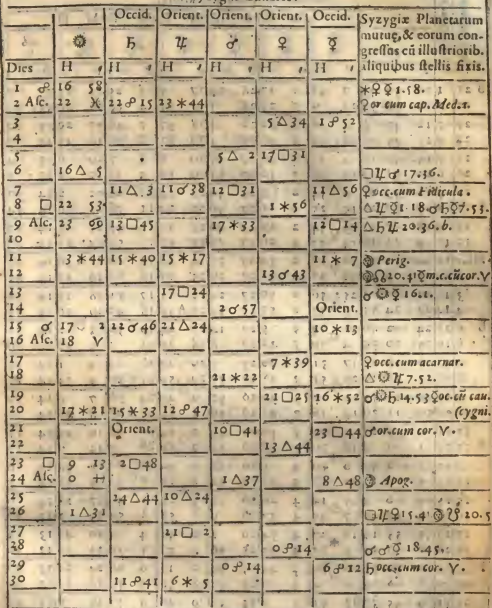 Occid. Orient. Orient. Orient. Occid. Syzygiæ Planetarum
☼ ♄ ♃ ♂ ♀ ☿ mutuę, & eorum con-
gressus cū illustriorib.
Dies H H H H H H aliquibus stellis fixis.
1 ☍ 16 58 ⚹♀☿1.58.
2 Asc. 22 ♓ 22☍15 23⚹44 ♀or cum cap. Med.1.
3 5△34 1☍52
4
5 5△2 17□31
6 16△5 □♃♂17.36.
7 11△3 11☌38 12□31 11△56 ♀occ.cum Fidicula.
8 □ 22 53 1⚹56 △♃☿1.18.☌♄☿7.53.
9 Asc. 23 ♋ 13□45 17⚹33 12□14 △♄♃20.36.b.
10
11 3⚹44 15⚹40 15⚹17 11⚹7 Perig.
12 13☌43 ☊20.41☿m.c.cūcor.♈
13 17□24 ☌☼☿16.1.
14 2☌57 Orient.
15 ☌ 17 2 12☌46 21△24 10⚹13
16 Asc. 18 ♈
17 7⚹39 ♀occ.cum acarnar.
18 21⚹22 △☼♃7.52.
19 21□25 16⚹52 ☌☼♄14.53♀oc.cū cau.
20 17⚹21 15⚹33 12☍47 (cygni.
21 Orient. 10□41 23□44 ♂or.cum cor. ♈.
22 13△44
23 □ 9 13 2□48
24 Asc. 0 1△37 8△48 Apog.
25 24△44 10△24
26 1△31 □♃♀15.4 ☋20.5
27 21□2
28 0☍14 ☌♂☿18.45.
29 0☍14 6☍12 ♄occ.cum cor. ♈.
30 11☍41 6⚹5